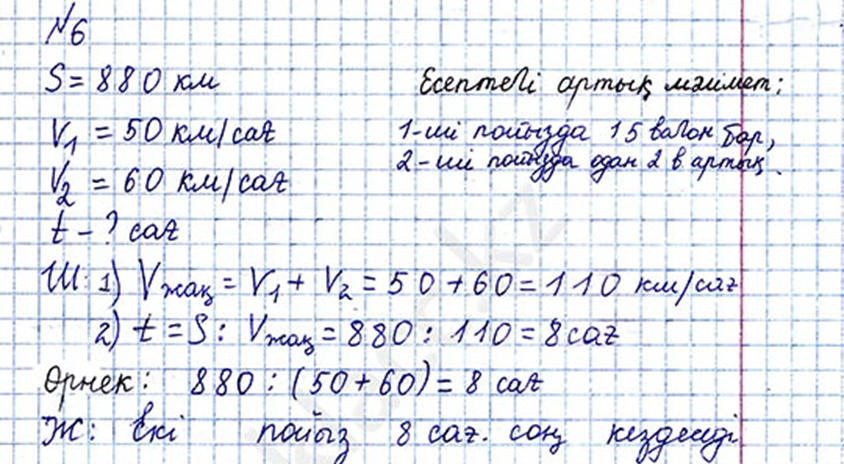 №6
S = 880 км
Есептегі артық мәлімет:
V₁ = 50 км/сағ
1-ші пойызда 15 вагон бар,
V₂ = 60 км/сағ
2-ші пойызда одан 2 в артық.
t - ? сағ
Ш: 1) Vжақ = V₁ + V₂ = 50 + 60 = 110 км/сағ
2) t = S : Vжақ = 880 : 110 = 8 сағ
Өрнек: 880 : (50 + 60) = 8 сағ
Ж: Екі пойыз 8 сағ. соң кездеседі